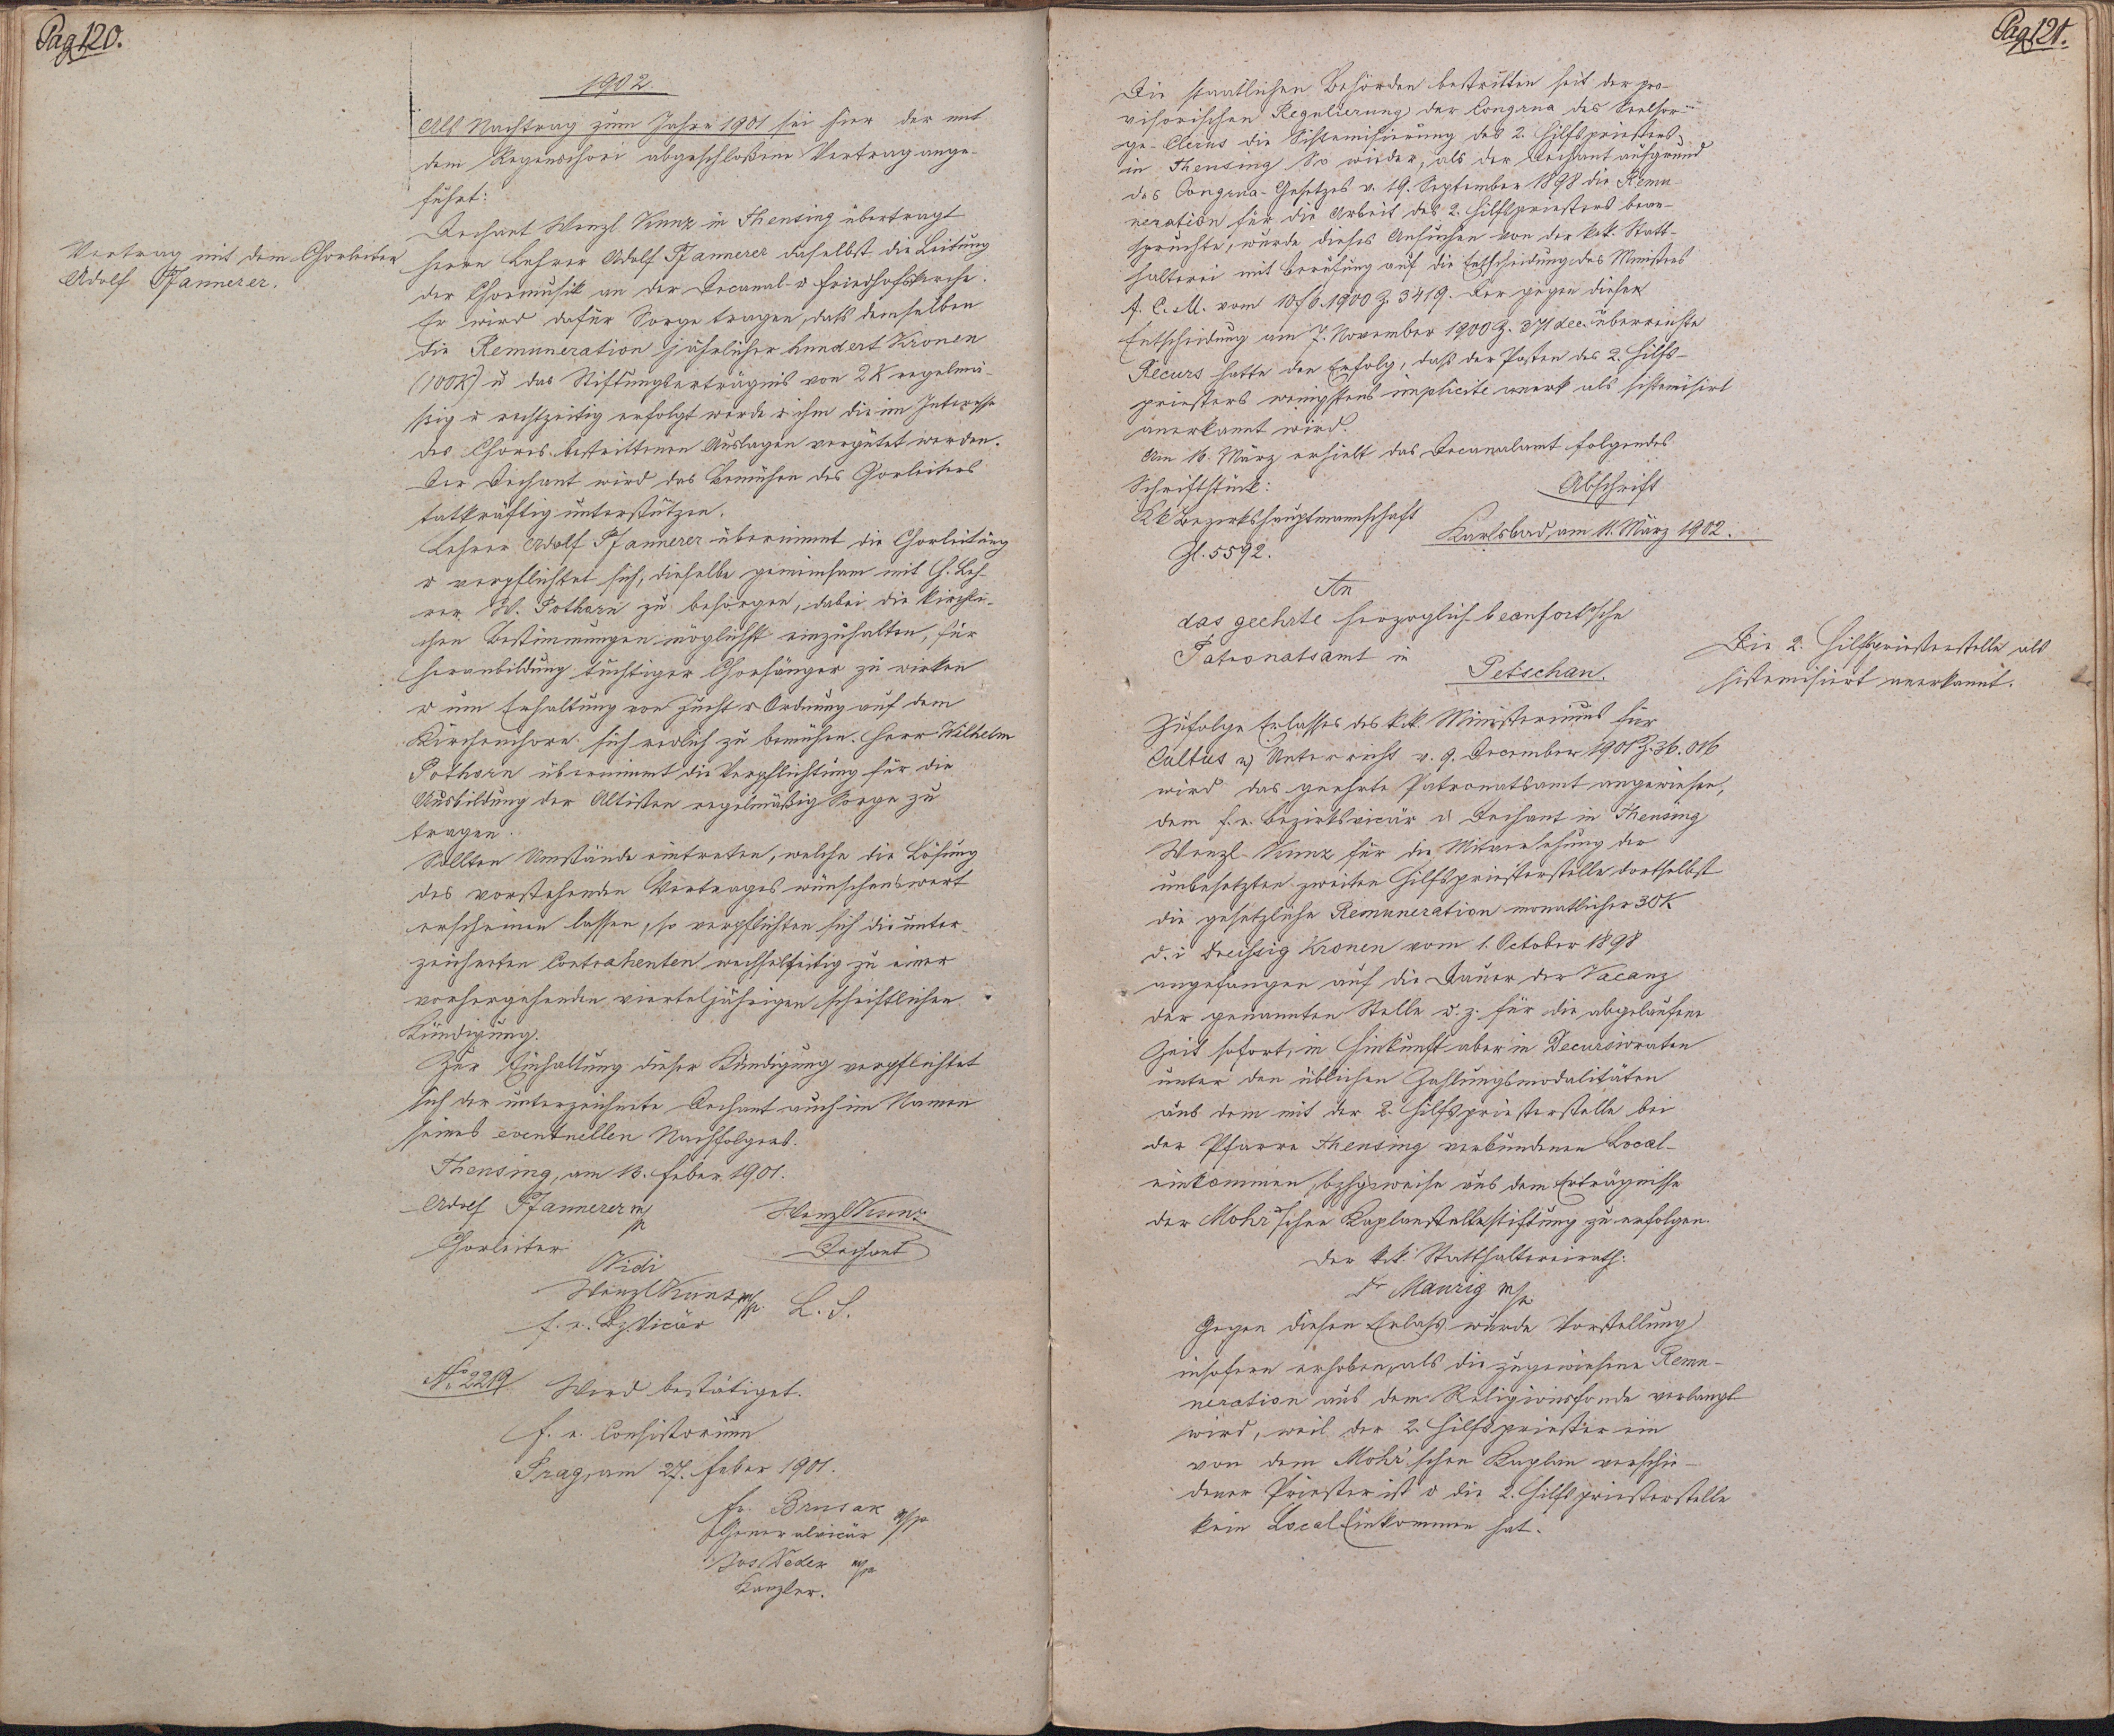 Pag 120.
1902
Als Nachtrag zum Jahre 1901 sei hier der mit
dem Regenschori abgeschloßene Vertrag ange-
führt:
Vertrag mit dem Chorleiter
Adolf Pfannerer.
Dechant Wenzl Kunz in Theusing übertragt
Herrn Lehrer Adolf Pfannerer daselbst die Leitung
der Chormusik an der Decanal- u Friedhofskirche.
Er wird dafür Sorge tragen, daß demselben
die Remuneration jährlicher hundert Kronen
(100K) u das Stiftungserträgnis von 2 K regelmä-
ßig u rechtzeitig erfolgt werde u ihm die im Interesse
des Chores bestrittenen Auslagen vergütet werden.
Der Dechant wird das Bemühen des Chorleiters
tatkräftig unterstützen.
Lehrer Adolf Pfannerer übernimmt die Chorleitung
u verpflichtet sich, dieselbe gemeinsam mit H. Leh-
rer W. Pothorn zu besorgen, dabei die kirchli-
chen Bestimmungen möglichst einzuhalten, für
Heranbildung tüchtiger Chorsänger zu wirken
u um Erhaltung von Zucht u Ordnung auf dem
Kirchenchore sich redlich zu bemühen. Herr Wilhelm
Pothorn übernimmt die Verpflichtung für die
Ausbildung der Altisten regelmäßig Sorge zu
tragen.
Sollten Umstände eintreten, welche die Lösung
des vorstehenden Vertrages wünschenswert
erscheinen lassen, so verpflichten sich die unter-
zeichneten Contrahenten wechselseitig zu einer
vorhergehenden vierteljährigen schriftlichen
Kündigung.
Zur Einhaltung dieser Kündigung verpflichtet
sich der unterzeichnete Dechant auch im Namen
seines eventuellen Nachfolgers.
Theusing, am 13. Feber 1901.
Adolf Pfannerer m/p
Chorleiter
Wenzl Kunz
Dechant
Vidi
Wenzl Kunz m/p. L. S.
f. e. Bz. Vicär
No 2219 Wird bestätiget.
f. e. Consistorium
Prag, am 27. Feber 1901.
Fr. Brusak m/p
Generalvicär
Jos. Šeder m/p
Kanzler.
Pag 121.
Die staatlichen Behörden bestritten seit der pro-
visorischen Regulierung der Congrua des Seelsor-
ge-Clerus die Sistemisierung des 2. Hilfspriesters
in Theusing. So wieder, als der Dechant aufgrund
des Congrua-Gesetzes v. 19. September 1898 die Remu-
neration für die Arbeit des 2. Hilfspriesters bean-
spruchte, wurde dieses Ansuchen von der k.k. Statt-
halterei mit Berufung auf die Entscheidung des Ministers
f. C. u. U. vom 10/6. 1900 Z. 3419. Der gegen diese
Entscheidung am 7. November 1900 Z. 371 dec. überreichte
Recurs hatte den Erfolg, daß der Posten des 2. Hilfs-
priesters wenigstens implicite als sistemisirt
anerkannt wird.
Am 16. März erhielt das Decanalamt folgendes
Schriftstück:
Abschrift
KK Bezirkshauptmannschaft
Karlsbad, am 11. März 1902.
Zl. 5592.
An
das geehrte herzoglich beaufort'sche
Patronatsamt in
Petschau.
Die 2. Hilfspriesterstelle als
sistemisiert anerkannt.
Zufolge Erlasses des k.k. Ministeriums für
Cultus u Unterricht v. 9. December 1901 Z. 36.016
wird das geehrte Patronatsamt angewiesen,
dem f. e. Bezirksvicär u Dechant in Theusing
Wenzl Kunz für die Mitversehung der
unbesetzten zweiten Hilfspriesterstelle dortselbst
die gesetzliche Remuneration monatlicher 30K
d. i dreißig Kronen vom 1. October 1898
angefangen auf die Dauer der Vacanz
der genannten Stelle u. z. für die abgelaufene
Zeit sofort, in Hinkunft aber in Decursivraten
unter den üblichen Zahlungsmodalitäten
aus dem mit der 2. Hilfspriesterstelle bei
der Pfarre Theusing verbundenen Local-
einkommen, bzhgsweise aus dem Erträgnisse
der Mohr'schen Kaplanstellestiftung zu erfolgen.
Der k.k. Statthaltereirath:
Dr Maurig m/p.
Gegen diesen Erlaß wurde Vorstellung
insofern erhoben, als die zugewiesene Remu-
neration aus dem Religionsfonde verlangt
wird, weil der 2. Hilfspriester ein
von dem Mohr'schen Kaplan verschie-
dener Priester ist u die 2. Hilfspriesterstelle
kein Local Einkommen hat.